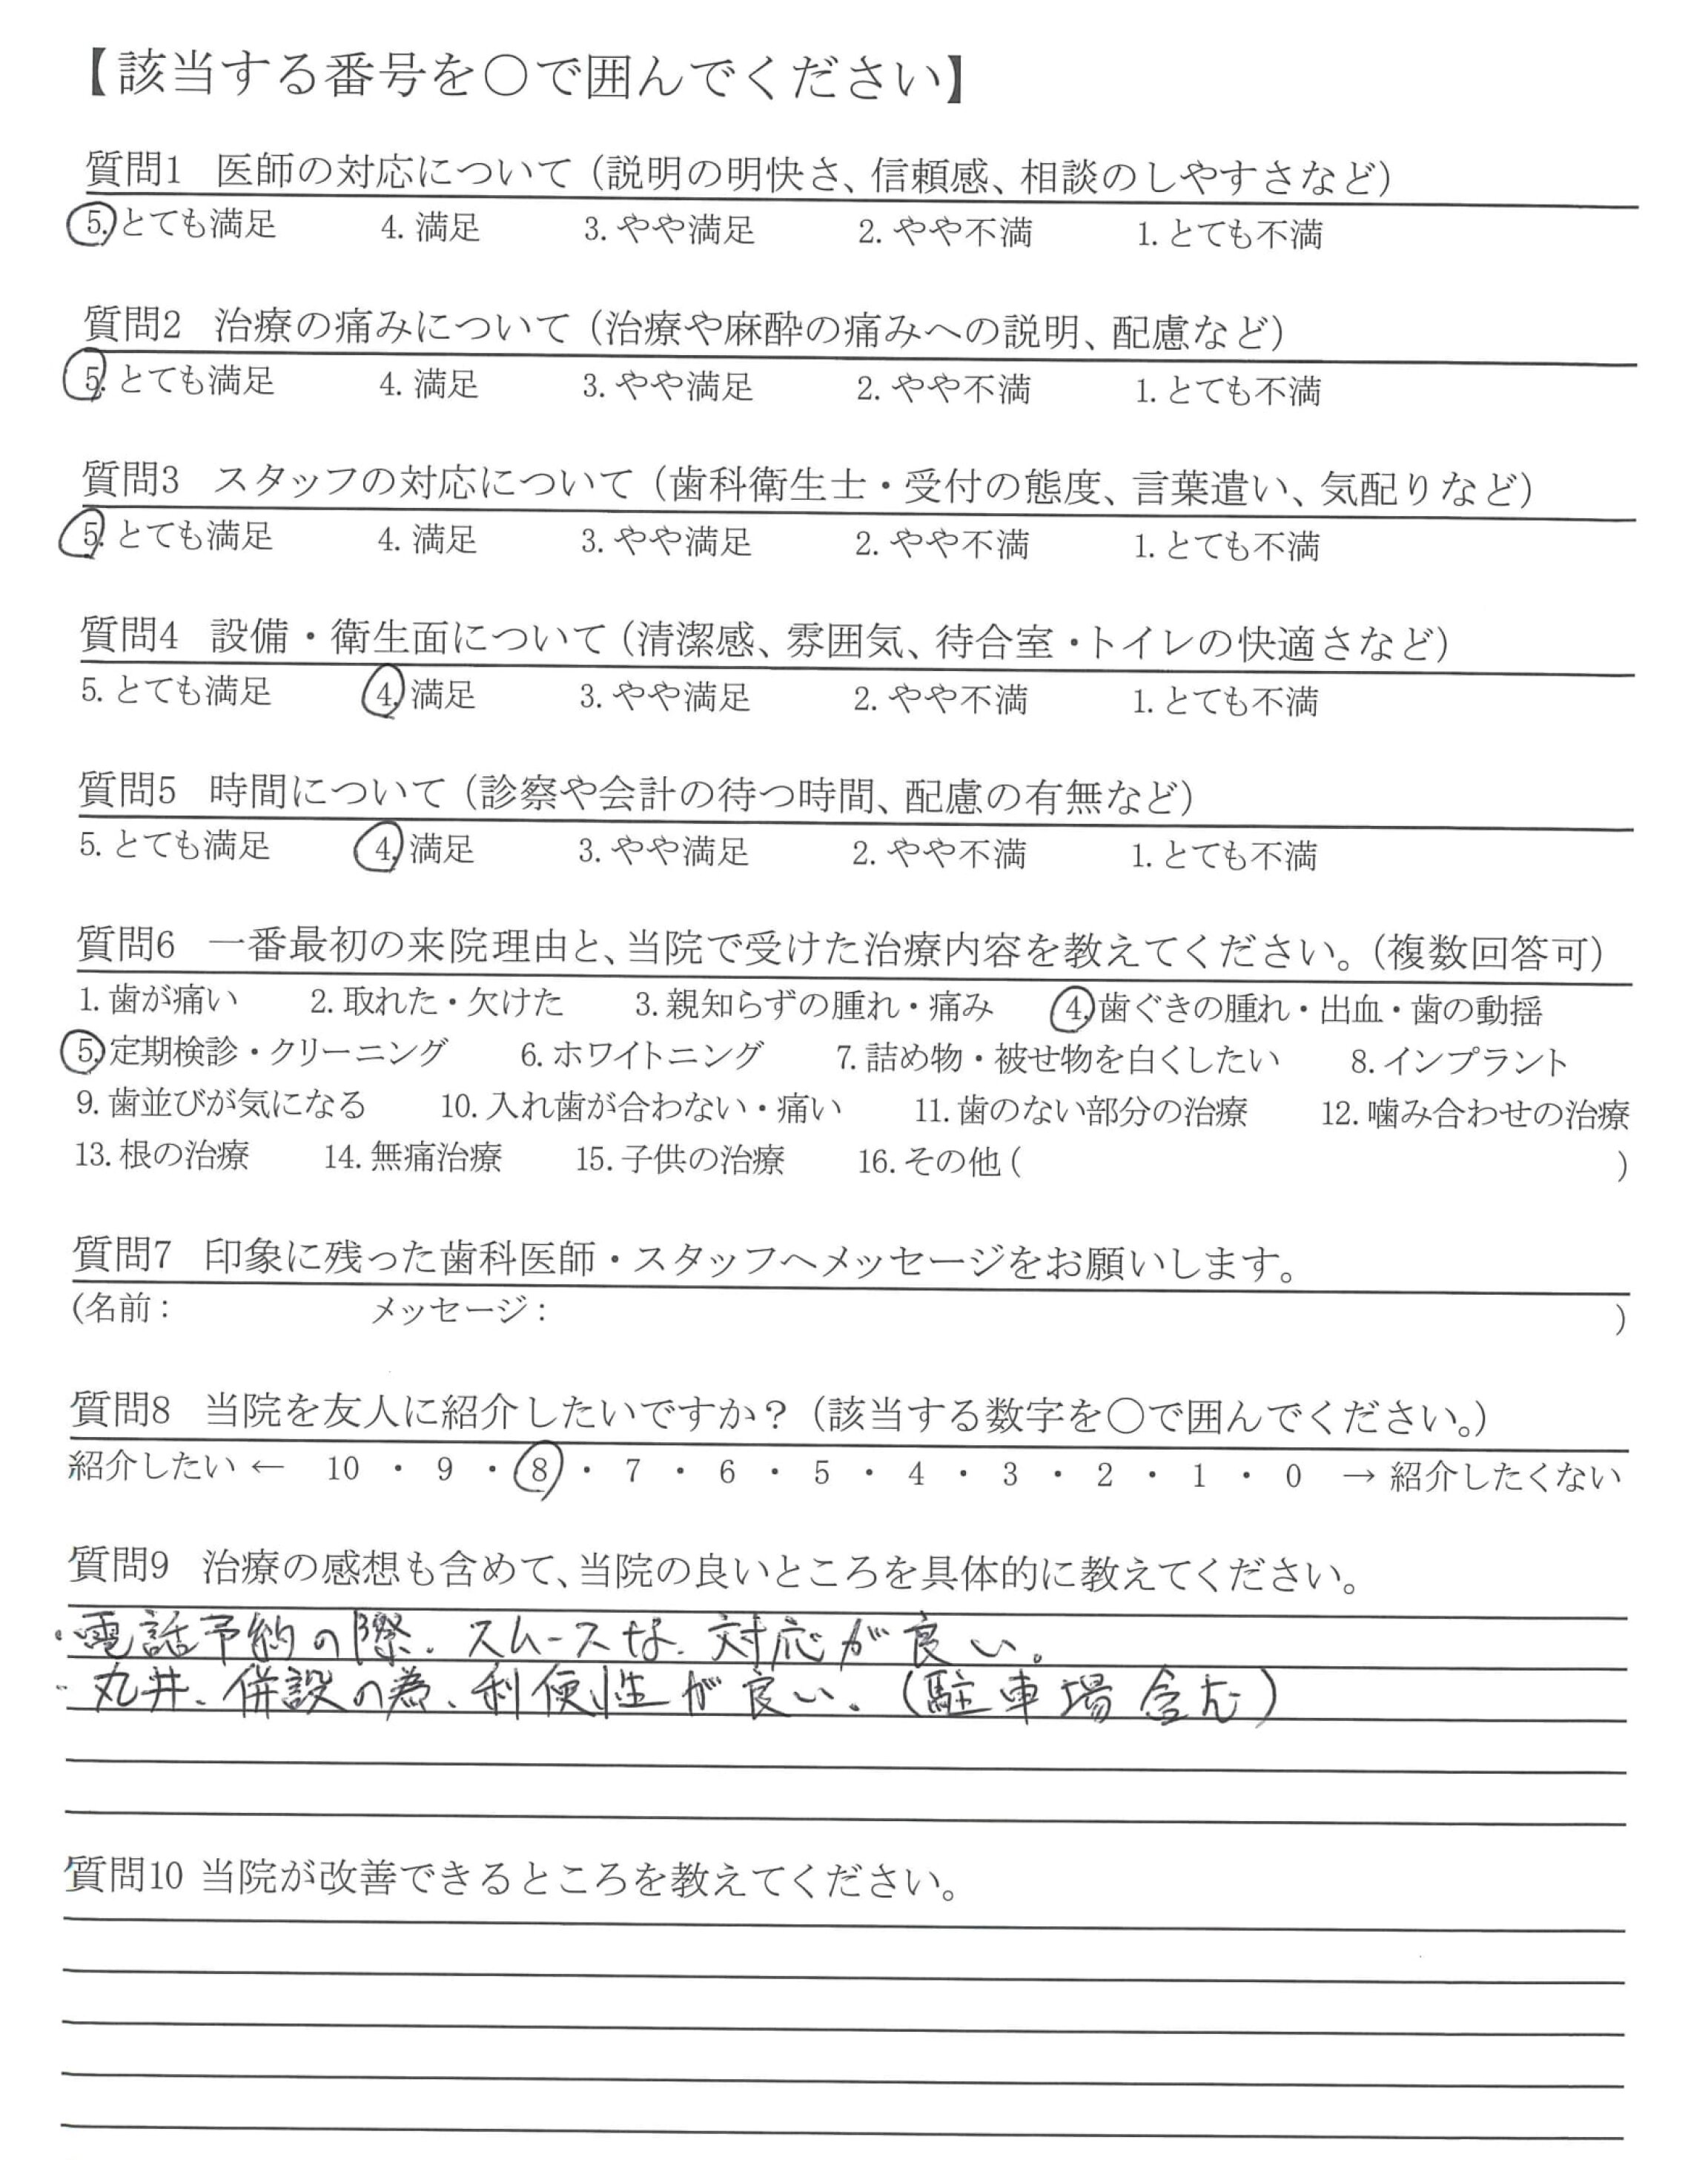 【該当する番号を○で囲んでください】
質問1 医師の対応について（説明の明快さ、信頼感、相談のしやすさなど）
5. とても満足 4. 満足 3. やや満足 2. やや不満 1. とても不満
質問2 治療の痛みについて（治療や麻酔の痛みへの説明、配慮など）
5. とても満足 4. 満足 3. やや満足 2. やや不満 1. とても不満
質問3 スタッフの対応について（歯科衛生士・受付の態度、言葉遣い、気配りなど）
5. とても満足 4. 満足 3. やや満足 2. やや不満 1. とても不満
質問4 設備・衛生面について（清潔感、雰囲気、待合室・トイレの快適さなど）
5. とても満足 4. 満足 3. やや満足 2. やや不満 1. とても不満
質問5 時間について（診察や会計の待つ時間、配慮の有無など）
5. とても満足 4. 満足 3. やや満足 2. やや不満 1. とても不満
質問6 一番最初の来院理由と、当院で受けた治療内容を教えてください。（複数回答可）
1. 歯が痛い 2. 取れた・欠けた 3. 親知らずの腫れ・痛み 4. 歯ぐきの腫れ・出血・歯の動揺
5. 定期検診・クリーニング 6. ホワイトニング 7. 詰め物・被せ物を白くしたい 8. インプラント
9. 歯並びが気になる 10. 入れ歯が合わない・痛い 11. 歯のない部分の治療 12. 噛み合わせの治療
13. 根の治療 14. 無痛治療 15. 子供の治療 16. その他（ ）
質問7 印象に残った歯科医師・スタッフへメッセージをお願いします。
（名前： メッセージ： ）
質問8 当院を友人に紹介したいですか？（該当する数字を○で囲んでください。）
紹介したい ← 10 ・ 9 ・ 8 ・ 7 ・ 6 ・ 5 ・ 4 ・ 3 ・ 2 ・ 1 ・ 0 → 紹介したくない
質問9 治療の感想も含めて、当院の良いところを具体的に教えてください。
・電話予約の際、スムースな、対応が良い。
・丸井、併設の為、利便性が良い。（駐車場含む）
質問10 当院が改善できるところを教えてください。